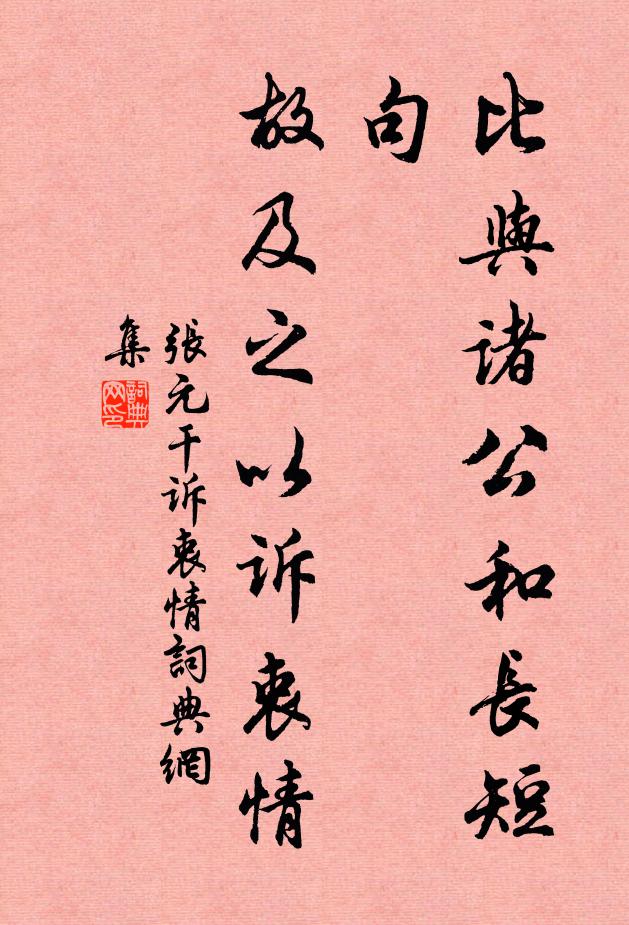 比與諸公和長短
句
故及之以訴衷情
張元干訴衷情詞典網
集
詞典
网印